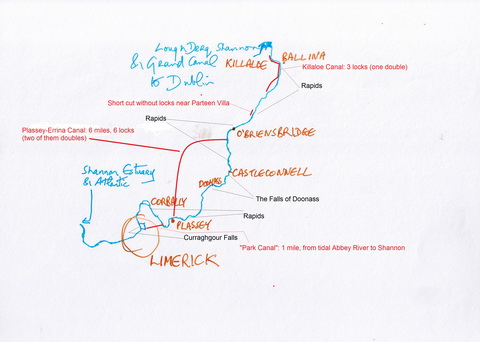 Lough Derg, Shannon
& Grand Canal
to Dublin
KILLALOE
BALLINA
Killaloe Canal: 3 locks (one double)
Rapids
Short cut without locks near Parteen Villa
Rapids
Plassey-Errina Canal: 6 miles, 6 locks
(two of them doubles)
O'BRIENSBRIDGE
Shannon Estuary
& Atlantic
CASTLECONNELL
DOONASS
The Falls of Doonass
CORBALLY
Rapids
PLASSEY
Curraghgour Falls
"Park Canal": 1 mile, from tidal Abbey River to Shannon
LIMERICK